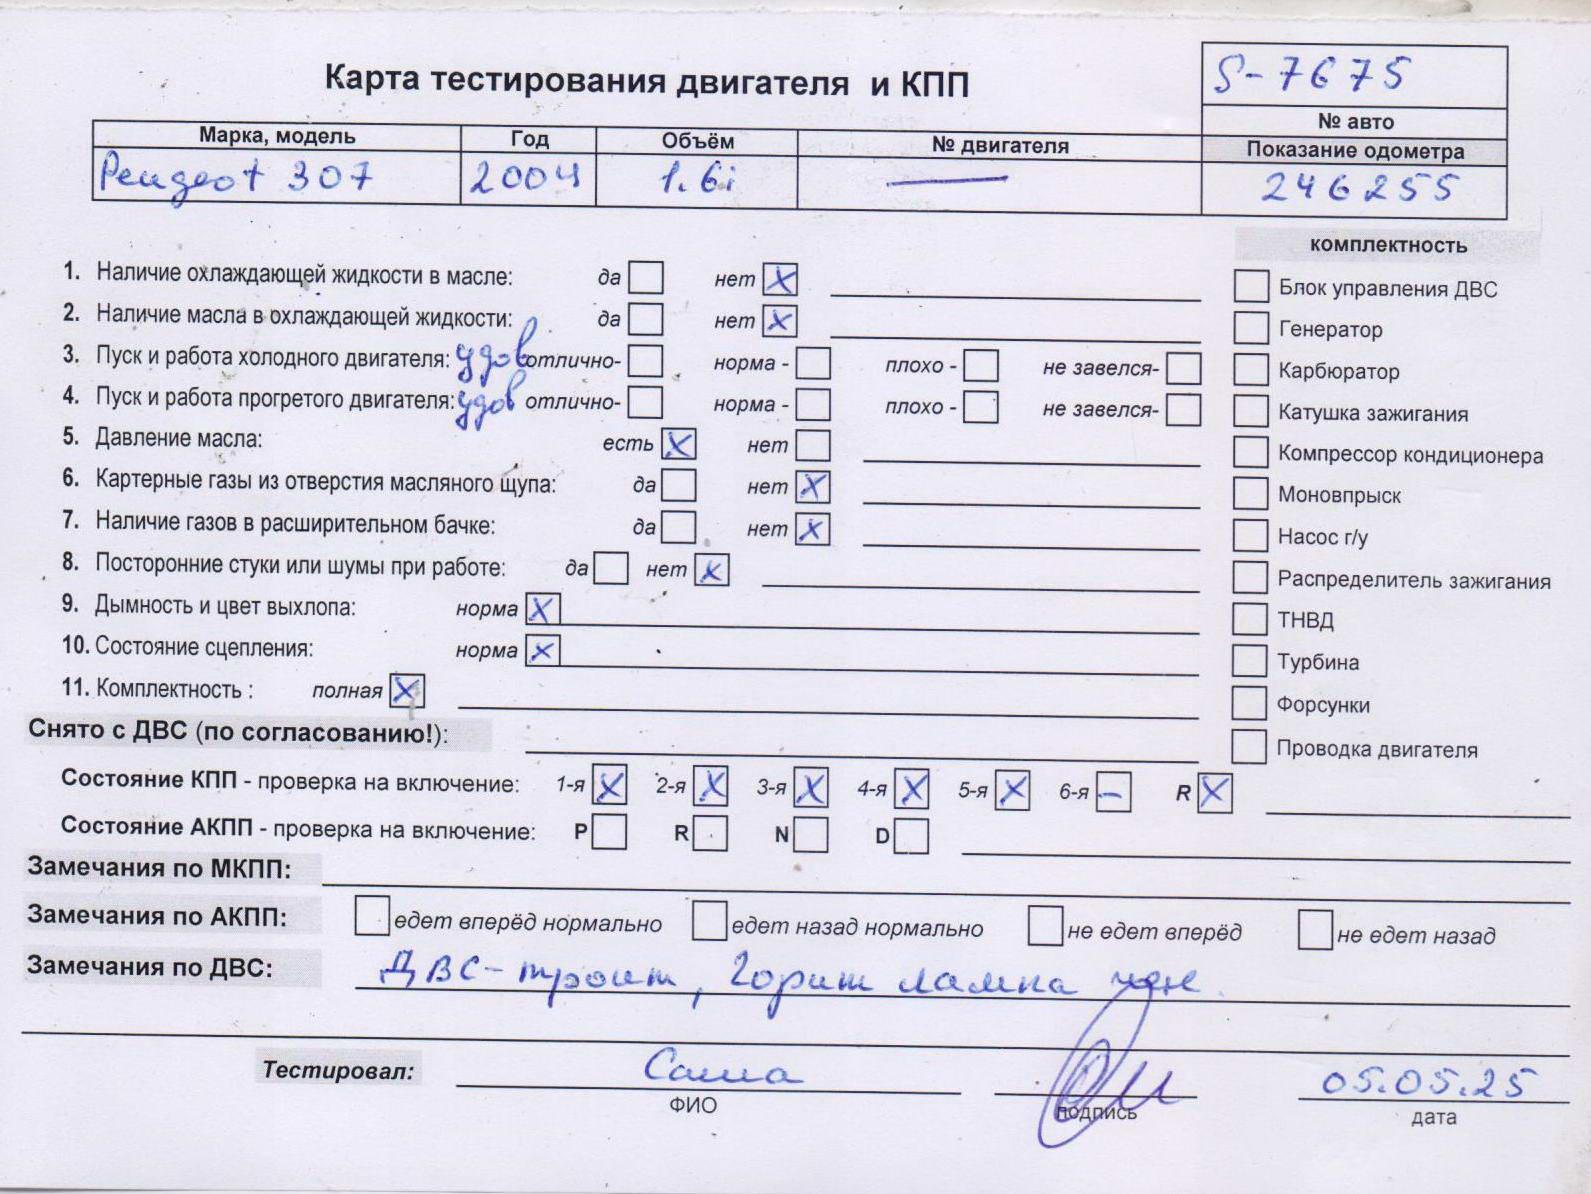 Карта тестирования двигателя и КПП
S-7675
№ авто
Марка, модель Год Объём № двигателя Показание одометра
Peugeot 307 2004 1.6i — 246255
комплектность
1. Наличие охлаждающей жидкости в масле: да нет X
Блок управления ДВС
2. Наличие масла в охлаждающей жидкости: да нет X
Генератор
3. Пуск и работа холодного двигателя: удов отлично- норма - плохо - не завелся-
Карбюратор
4. Пуск и работа прогретого двигателя: удов отлично- норма - плохо - не завелся-
Катушка зажигания
5. Давление масла: есть X нет
Компрессор кондиционера
6. Картерные газы из отверстия масляного щупа: да нет X
Моновпрыск
7. Наличие газов в расширительном бачке: да нет X
Насос г/у
8. Посторонние стуки или шумы при работе: да нет X
Распределитель зажигания
9. Дымность и цвет выхлопа: норма X
ТНВД
10. Состояние сцепления: норма X
Турбина
11. Комплектность : полная X
Форсунки
Снято с ДВС (по согласованию!):
Проводка двигателя
Состояние КПП - проверка на включение: 1-я X 2-я X 3-я X 4-я X 5-я X 6-я – R X
Состояние АКПП - проверка на включение: P R N D
Замечания по МКПП:
Замечания по АКПП: едет вперёд нормально едет назад нормально не едет вперёд не едет назад
Замечания по ДВС: ДВС-троит, Горит лампа чек
Тестировал: Саша 05.05.25
ФИО подпись дата